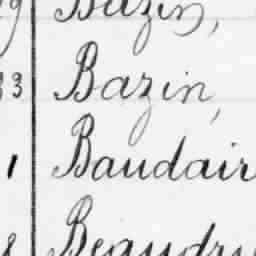 Bazin,
13 Bazin,
1 Baudair
8 Beaudry